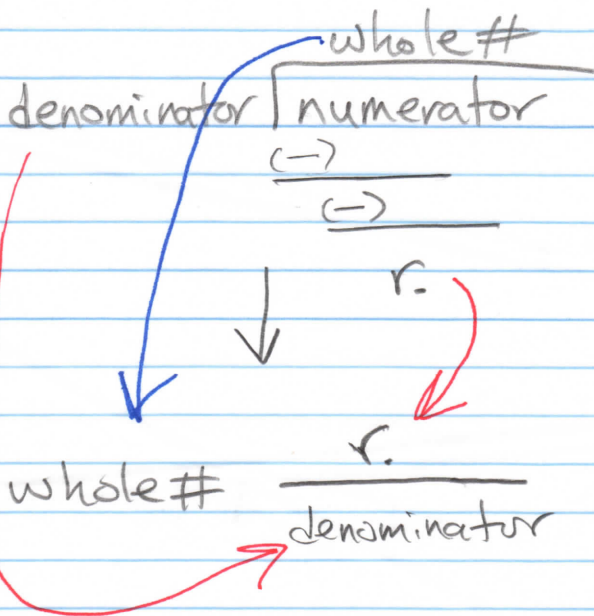 whole #
denominator numerator
(-)
(-)
r.
r.
whole #
denominator